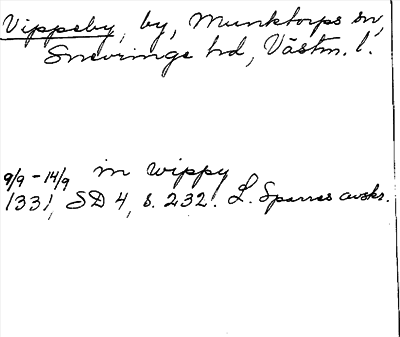 Vippeby, by, Munktorps sn,
Snevringe hd, Västm. l.
9/9 - 14/9 in wippy
1331, SD 4, s. 232. L. Sparres avskr.